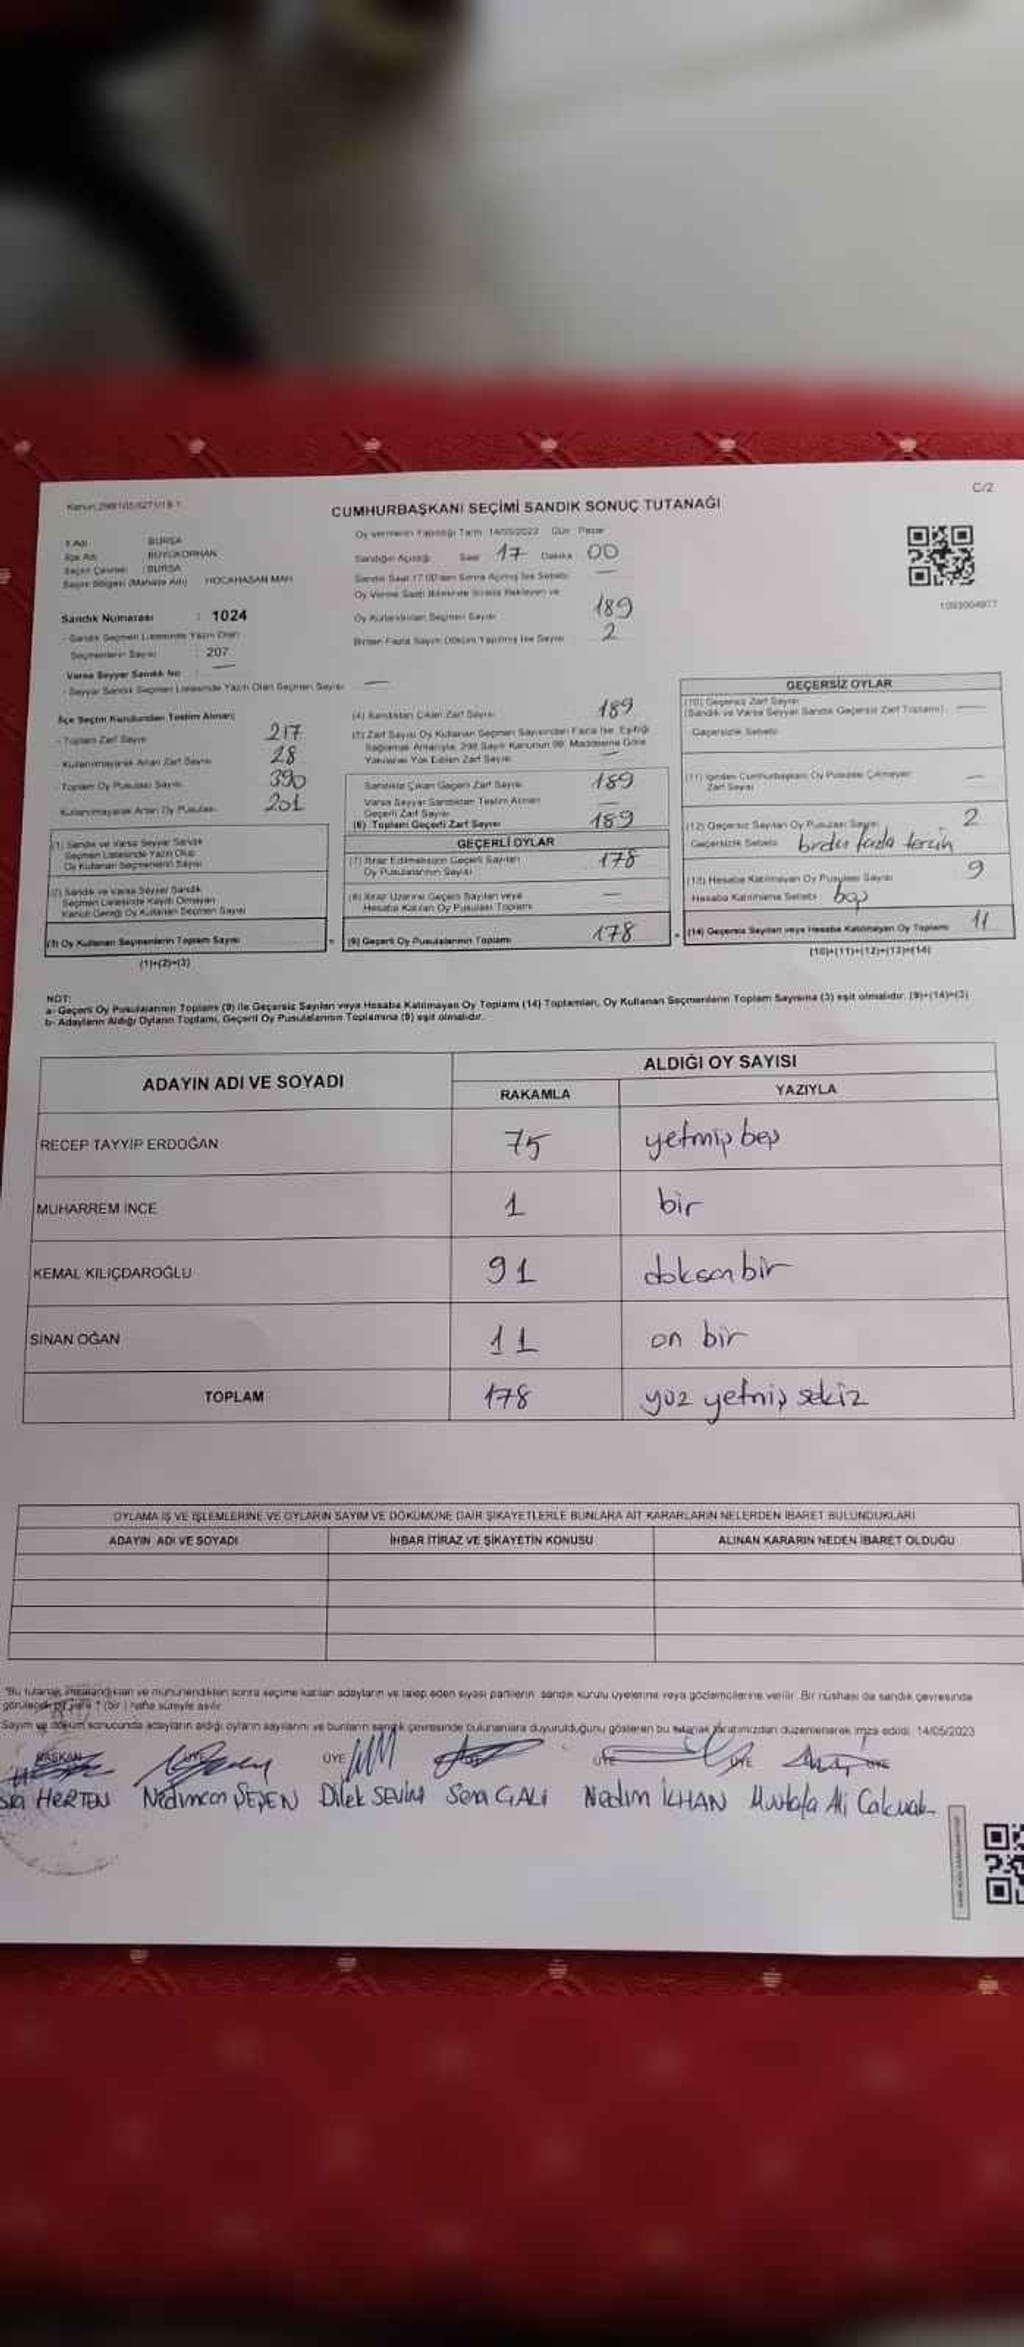 C/2
CUMHURBAŞKANI SEÇİMİ SANDIK SONUÇ TUTANAĞI
Oy vermenin Yapıldığı Tarih 14/05/2023 Gün Pazar
İl Adı : BURSA
İlçe Adı : BÜYÜKORHAN
Seçim Çevresi : BURSA
Seçim Bölgesi (Mahalle Adı) HOCAHASAN MAH
Sandığın Açıldığı Saat 17 Dakika 00
Sandık Saat 17.00'den Sonra Açılmış İse Sebebi
Oy Verme Saati Bitiminde Sırada Bekleyen ve
Oy Kullandırılan Seçmen Sayısı 189
Birden Fazla Sayım Döküm Yapılmış İse Sayısı 2
Sandık Numarası : 1024
- Sandık Seçmen Listesinde Yazılı Olan
Seçmenlerin Sayısı : 207
Varsa Seyyar Sandık No
- Seyyar Sandık Seçmen Listesinde Yazılı Olan Seçmen Sayısı
İlçe Seçim Kurulundan Teslim Alınan;
- Toplam Zarf Sayısı 217
- Kullanılmayarak Artan Zarf Sayısı 28
- Toplam Oy Pusulası Sayısı 390
Kullanılmayarak Artan Oy Pusulası 201
(1) Sandık ve Varsa Seyyar Sandık
Seçmen Listesinde Yazılı Olup
Oy Kullanan Seçmenlerin Sayısı
(2) Sandık ve Varsa Seyyar Sandık
Seçmen Listesinde Kayıtlı Olmayan
Kanun Gereği Oy Kullanan Seçmen Sayısı
(3) Oy Kullanan Seçmenlerin Toplam Sayısı
(1)+(2)=(3)
(4) Sandıktan Çıkan Zarf Sayısı 189
(5) Zarf Sayısı Oy Kullanan Seçmen Sayısından Fazla İse, Eşitliği
Sağlamak Amacıyla, 298 Sayılı Kanunun 98. Maddesine Göre
Yakılarak Yok Edilen Zarf Sayısı
Sandıkta Çıkan Geçerli Zarf Sayısı 189
Varsa Seyyar Sandıktan Teslim Alınan
Geçerli Zarf Sayısı
(6) Toplam Geçerli Zarf Sayısı 189
GEÇERLİ OYLAR
(7) İtiraz Edilmeksizin Geçerli Sayılan
Oy Pusulalarının Sayısı 178
(8) İtiraz Üzerine Geçerli Sayılan veya
Hesaba Katılan Oy Pusulası Toplamı
(9) Geçerli Oy Pusulalarının Toplamı 178
GEÇERSİZ OYLAR
(10) Geçersiz Zarf Sayısı
(Sandık ve Varsa Seyyar Sandık Geçersiz Zarf Toplamı)
Geçersizlik Sebebi
(11) İçinden Cumhurbaşkanı Oy Pusulası Çıkmayan
Zarf Sayısı
(12) Geçersiz Sayılan Oy Pusulası Sayısı 2
Geçersizlik Sebebi birden fazla tercih
(13) Hesaba Katılmayan Oy Pusulası Sayısı 9
Hesaba Katılmama Sebebi boş
(14) Geçersiz Sayılan veya Hesaba Katılmayan Oy Toplamı 11
(10)+(11)+(12)+(13)=(14)
NOT:
a- Geçerli Oy Pusulalarının Toplamı (9) ile Geçersiz Sayılan veya Hesaba Katılmayan Oy Toplamı (14) Toplamları, Oy Kullanan Seçmenlerin Toplam Sayısına (3) eşit olmalıdır. (9)+(14)=(3)
b- Adayların Aldığı Oyların Toplamı, Geçerli Oy Pusulalarının Toplamına (9) eşit olmalıdır.
ADAYIN ADI VE SOYADI ALDIĞI OY SAYISI
RAKAMLA YAZIYLA
RECEP TAYYİP ERDOĞAN 75 yetmiş beş
MUHARREM İNCE 1 bir
KEMAL KILIÇDAROĞLU 91 doksan bir
SİNAN OĞAN 11 on bir
TOPLAM 178 yüz yetmiş sekiz
OYLAMA İŞ VE İŞLEMLERİNE VE OYLARIN SAYIM VE DÖKÜMÜNE DAİR ŞİKAYETLERLE BUNLARA AİT KARARLARIN NELERDEN İBARET BULUNDUKLARI
ADAYIN ADI VE SOYADI İHBAR İTİRAZ VE ŞİKAYETİN KONUSU ALINAN KARARIN NEDEN İBARET OLDUĞU
"Bu tutanak imzalandıktan ve mühürlendikten sonra seçime katılan adayların ve talep eden siyasi partilerin sandık kurulu üyelerine veya gözlemcilerine verilir. Bir nüshası da sandık çevresinde
görülecek bir yere 1 (bir) hafta süreyle asılır
Sayım ve döküm sonucunda adayların aldığı oyların sayılarını ve bunların sandık çevresinde bulunanlara duyurulduğunu gösteren bu tutanak tarafımızdan düzenlenerek imza edildi. 14/05/2023
BAŞKAN ÜYE ÜYE ÜYE ÜYE ÜYE
HERTEN Nedimcan ŞEŞEN Dilek SEVİM Sena ÇALI Nedim İLHAN Mustafa Ali